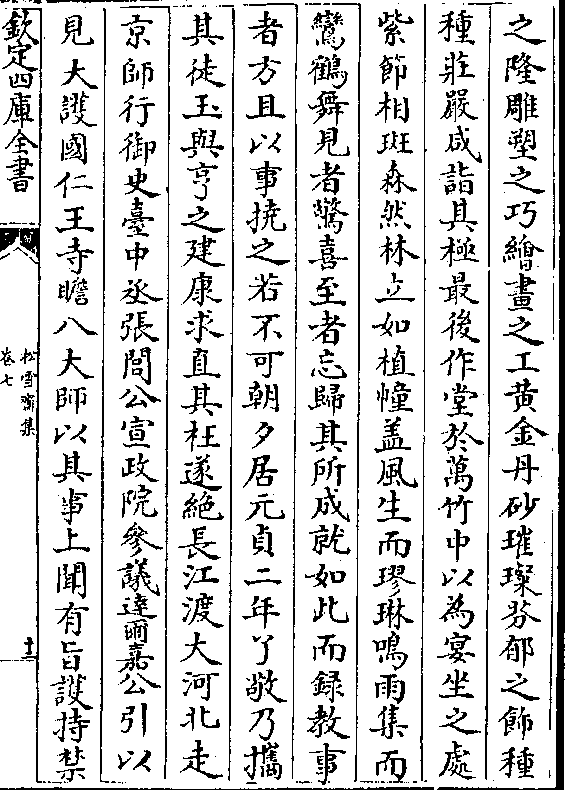 之隆雕塑之巧繪畫之工黄金丹砂璀璨芬郁之飾種
種莊嚴咸詣其極最後作堂於萬竹中以為宴坐之處
紫節相斑森然林立如植幢盖風生而璆琳鳴雨集而
鸞鶴舞見者驚喜至者忘歸其所成就如此而録教事
者方且以事撓之若不可朝夕居元貞二年了敬乃攜
其徒玉與亨之建康求直其枉遂絶長江渡大河北走
京師行御史臺中丞張閭公宣政院參議達爾嘉公引以
見大護國仁王寺瞻八大師以其事上聞有旨護持禁
欽定四庫全書
松雪齋集
卷七
十二